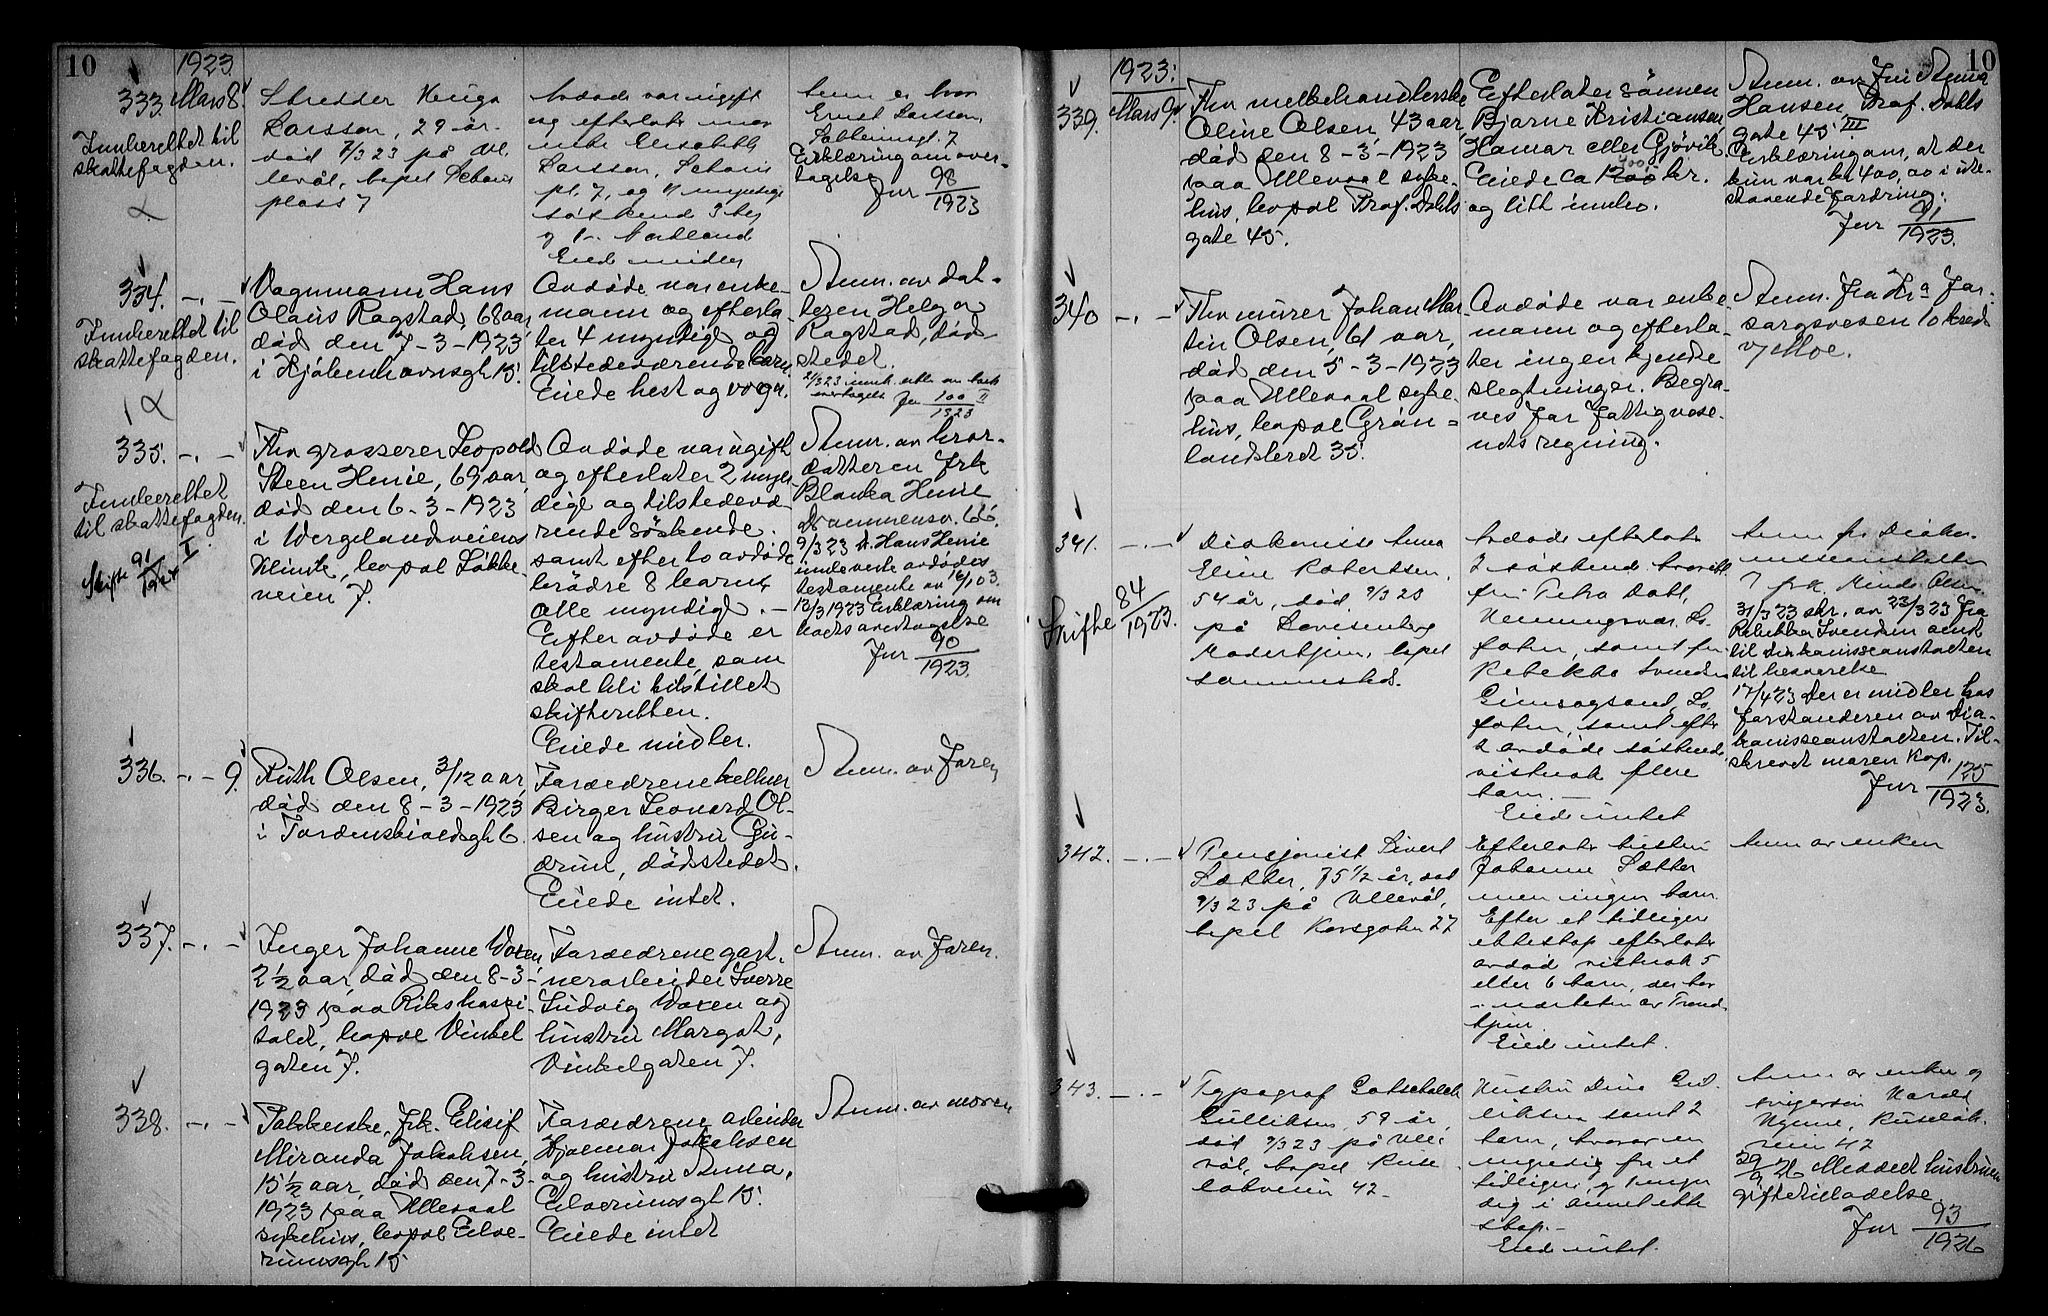 10
1923.
333. Mars 8.
Innberettet til
skattefogden.
Larsson, 29 år.
død 7/3 23 på Ul-
levål, bopel Schous
plass 7
Avdøde var ugift
og efterlater mor
enke Elisabeth
Larsson, Schous
pl. 7, og 4 myndige
søskend 3 her
Eied midler
Anm. er bror
Ernst Larsson,
Erklæring om over-
tagelse
Jnr 98/1923
334. -"-
Innberettet til
skattefogden.
Vognmann Hans
Olaus Ragstad, 68 aar,
død den 7-3-1923
i Kjøbenhavnsgt. 15.
Avdøde var enke-
mann og efterla-
ter 4 myndige og
tilstedeværende barn.
Eiede hest og vogn.
Anm. av dat-
teren Helga
Ragstad, død-
stedet.
Jnr 100 II/1923
335. -"-
Innberettet
til skattefogden.
Skifte 91/1924 I
Fhv grosserer Leopold
Steen Henie, 69 aar,
død den 6-3-1923
i Wergelandsveiens
Klinik, bopel Løkke-
veien 7.
Avdøde var ugift
og efterlater 2 myn-
dige og tilstedevæ-
rende søskende.
samt efter to avdøde
brødre 8 barn
alle myndige. -
Efter avdøde er
testamente, som
skal bli tilstillet
skifteretten.
Eiede midler.
Anm. av bror-
datteren Frk
Blanka Henie
Drammensv. 66.
9/3 23 Hans Henie
innleverte avdødes
testamente av 16/1 03.
12/3 1923 Erklæring om
boets overtagelse
Jnr 90/1923.
336. -"- 9.
Ruth Olsen, 3/12 aar,
død den 8-3-1923
i Tordenskioldsgt. 6.
Forældrene kelner
Birger Leonard Ol-
sen og hustru Gu-
drun, dødstedet.
Eiede intet.
Anm. av faren
337. -"-
Inger Johanne Woxen
2 1/2 aar, død den 8-3-
1923 paa Rikshospi-
talet, bopel Vinkel
gaten 7.
Forældrene gart-
nerarbeider Sverre
Ludvig Woxen og
hustru Margot,
Vinkelgaten 7.
Anm. av faren.
338. -"-
Pakkerske, Frk. Elisif
Miranda Jakobsen,
15 1/2 aar, død den 7-3-
1923 paa Ullevaal
sykehus, bopel Elve-
rumsgt. 15
Forældrene arbeider
Hjalmar Jakobsen
og hustru Anna,
Elverumsgt. 15.
Eiede intet
Anm. av moren
10
1923.
339. Mars 9.
Fhv melkehandlerske
Oline Olsen, 43 aar,
død den 8-3-1923
paa Ullevaal syke-
hus, bopel Prof. Dahls
gate 45.
Efterlater sønnen
Bjarne Kristiansen
Hamar eller Gjøvik.
Eiede ca 1200 400 kr.
og litt innbo.
Anm. av Frk Anna
Hansen, Prof. Dahls
gate 45 III
Erklæring om, at der
kun var kr 400,00 i ute-
staaende fordring.
Jnr 91/1923.
340 -"-
Fhv murer Johan Mar-
tin Olsen, 61 aar,
død den 5-3-1923
paa Ullevaal syke-
hus, bopel Grøn-
landsleret 35.
Avdøde var enke-
mann og efterla-
ter ingen kjendte
slegtninger. Begra-
ves for fattigvese-
nets regning.
Anm. fra Kra For-
sorgsvesen 10 kreds
v/ Moe.
341. -"-
Skifte 84/1923.
Diakonisse Anna
Eline Robertsen,
54 år, død 9/3 23
på Lovisenberg
Moderhjem, bopel
sammesteds.
Avdøde efterlater
2 søskend hvorav
fru Petra Dahl,
Henningsvær, Lo-
foten, samt fru
Rebekka Svendsen
Gimsøysand, Lo-
foten, samt efter
2 avdøde søskende
vistnok flere
barn. -
Eied intet
Anm. fr. Diakon-
isseanstalten
v/ frk. Minda Olsen
31/3 23 skr. av 23/3 23 fra
Rebekka Svendsen sendt
til diakonisseanstalten
til besvarelse
17/4 23 Der er midler hos
forstanderen av Dia-
konisseanstalten. Til-
skrevet maren Kop.
Jnr 125/1923.
342. -"-
Pensjonist Sivert
Sætther, 75 1/2 år, død
9/3 23 på Ullevål,
bopel Korsgaten 27
Efterlater hustru
Johanne Sætther
men ingen barn.
Efter et tidligere
ekteskap efterlater
avdød vistnok 5
eller 6 barn, der bor
i nærheten av Trond-
hjem.
Eied intet.
Anm av enken
343. -"-
Typograf Gotschalck
Gulliksen, 59 år,
død 9/3 23 på Ulle-
vål, bopel Ruse-
løkveien 42 -
Hustru Dina Gul-
liksen samt 2
barn, hvorav en
myndig fra et
tidligere og 1 umyn-
dig i sidste ekte
skap. -
Eied intet.
Anm av enken og
svigersøn Harald
Ruseløk-
veien 42
29/9 26 Meddelt hustruen
giftetilladelse
Jnr 93/1926